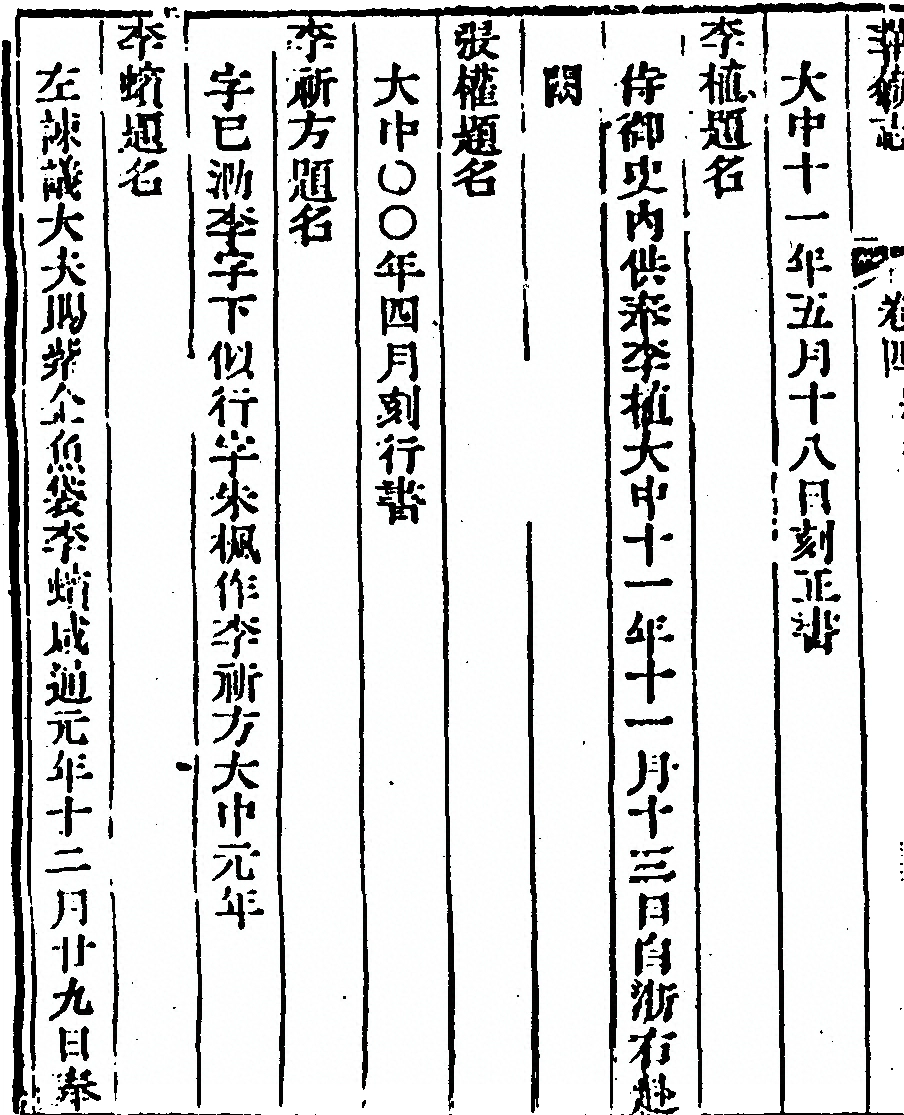 卷四
大中十一年五月十八日刻正書
李植題名
侍御史內供奉李植大中十一年十一月十三日自浙右赴
闕
張權題名
大中〇〇年四月刻行書
李新方題名
字已泐李字下似行字朱楓作李新方大中元年
李蠙題名
左諫議大夫賜紫金魚袋李蠙咸通元年十二月廿九日奉